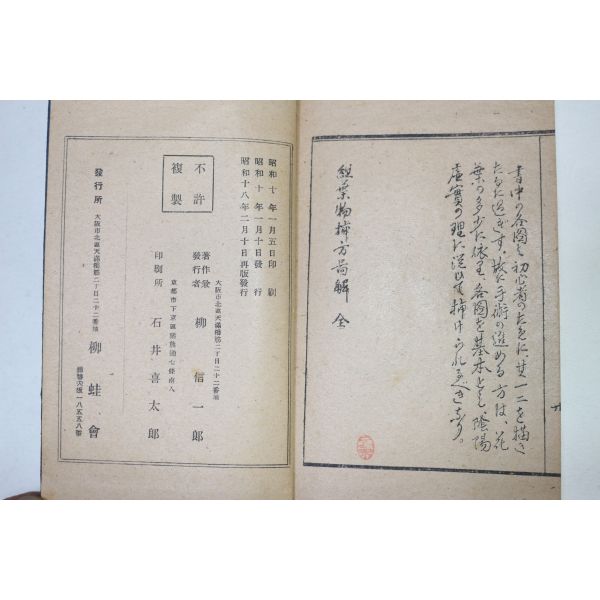 書中の各圖は初心者のために其一二を描き
たるに過ぎず、故に手術の進める方は、花
葉の多少に依り、各圖を基本とし、陰陽
虚實の理に從ひて挿けられるべきなり。
組葉物挿方图解 全
昭和十年一月五日印刷
昭和十年一月十日發行
昭和十八年二月十日再版發行
不許
複製
大阪市北區天滿橋筋二丁目二十二番地
著作兼
發行者 柳信一郎
京都市下京區
印刷所 石井喜太郎
大阪市北區天滿橋筋二丁目二十二番地
發行所 柳蛙會
振替大阪一八五五八番